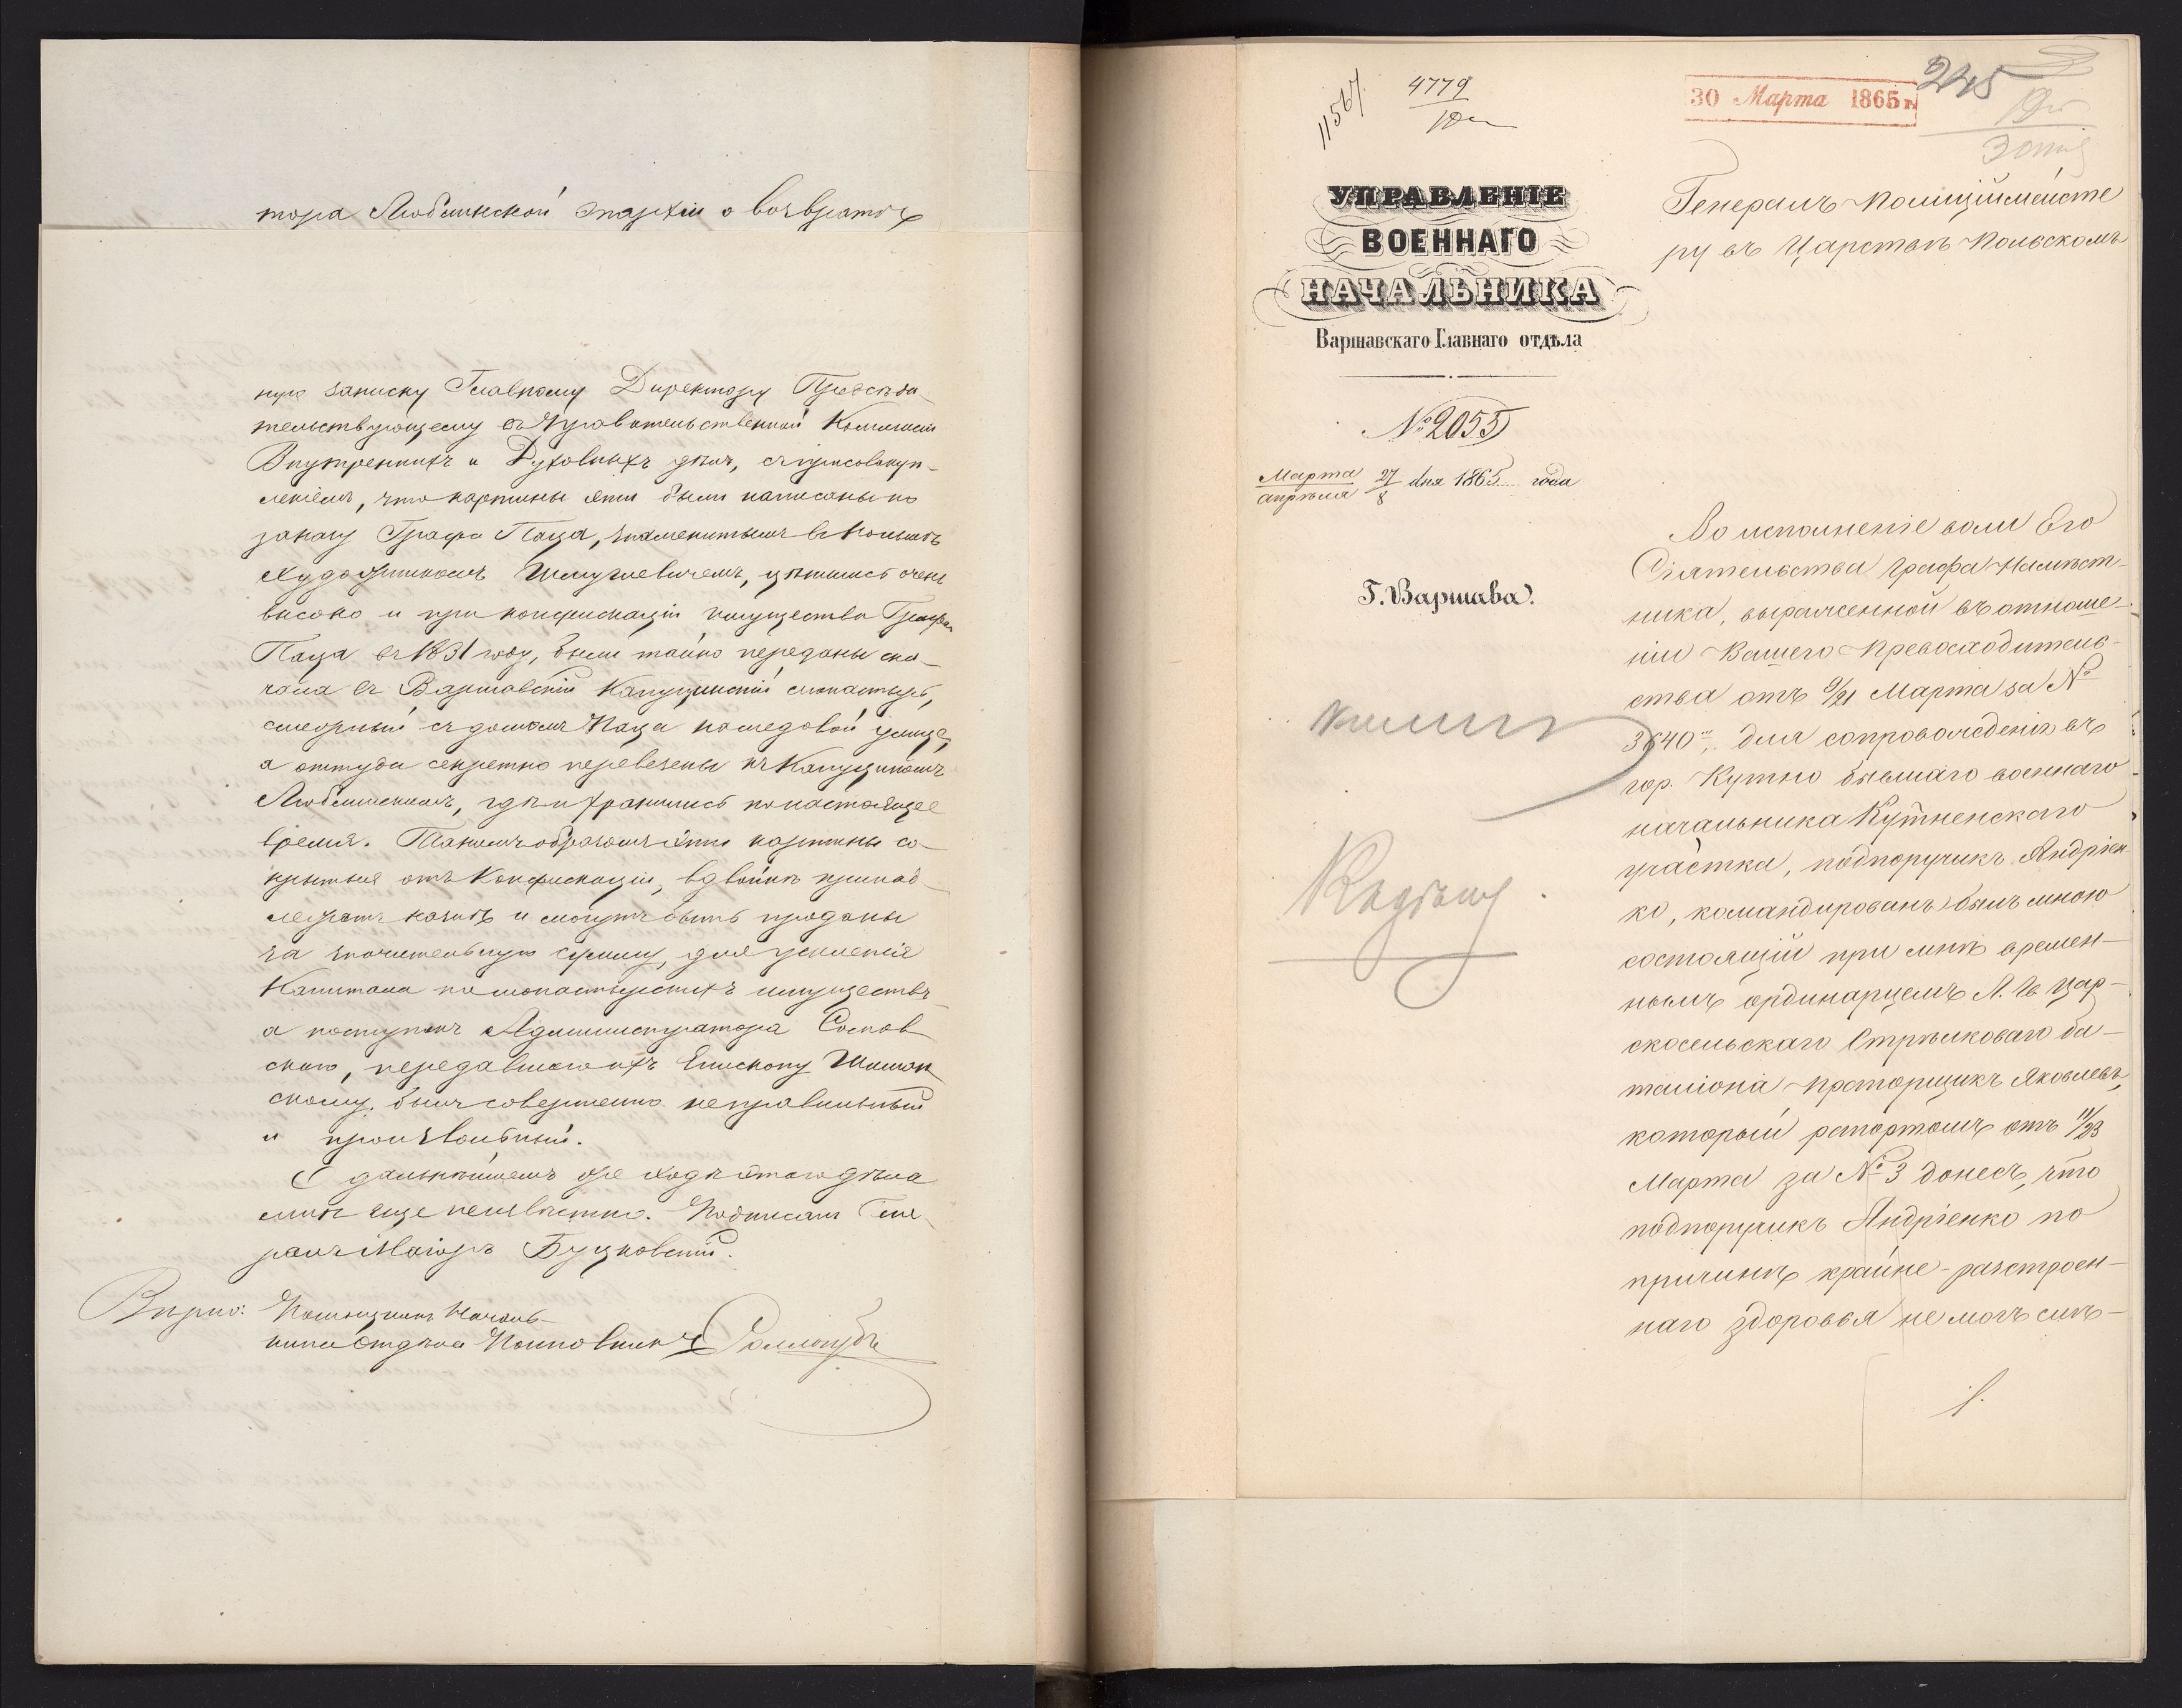 тора Люблинской Эпархіи о возвратѣ
ную записку Главному Директору Предсѣда-
тельствующему въ Правительственной Коммисіи
Внутреннихъ и Духовныхъ дѣлъ, съ присовокуп-
леніемъ, что картины эти были написаны по
заказу Графа Паца, знаменитымъ въ Польшѣ
Художникомъ Шмуглевичемъ, цѣнились очень
высоко и при конфискаціи имущества Графа
Паца въ 1831 году, были тайно переданы сна-
чала въ Варшавскій Капуцинскій монастырь,
смежный съ домомъ Паца по медовой улицѣ,
а оттуда секретно перевезены къ Капуцинамъ
Люблинскимъ, гдѣ и хранились по настоящее
время. Такимъ образомъ эти картины со-
крытыя отъ Конфискаціи, вдвойнѣ принад-
лежатъ казнѣ и могутъ быть проданы
за значительную сумму, для усиленія
Капитала по монастырскихъ имуществъ
а поступокъ Администратора Соснов
скаго, передавшаго ихъ Епископу Шиман
скому, былъ совершенно неправильный
и произвольный.
О дальнѣйшемъ же ходѣ этого дѣла
мнѣ еще неизвѣстно. Подписалъ Гене
ралъ Маіоръ Буцковскій.
Вѣрно: Помощникъ Началь-
ника Отдѣла Полковникъ
11567. 4779
30 Марта 1865 г.
245
УПРАВЛЕНІЕ
ВОЕННАГО
НАЧАЛЬНИКА
Варшавскаго Главнаго отдѣла
№ 2055
Марта 27 дня 1865 года
апрѣля 8
Г. Варшава.
Генералъ-Полиціймейсте
ру въ Царствѣ Польскомъ
Во исполненіе воли Его
Сіятельства Графа Намѣст-
ника, выраженной въ отноше-
ніи Вашего Превосходитель-
ства отъ 9/21 Марта за №
3640, для сопровожденія въ
гор. Кутно бывшаго военнаго
начальника Кутненскаго
участка, подпоручика Андріен-
ко, командированъ былъ мною
состоящій при мнѣ времен-
нымъ ординарцемъ Л. Гв. Цар-
скосельскаго Стрѣлковаго ба-
таліона Прапорщикъ Яковлевъ,
который рапортомъ отъ 11/23
Марта за № 3 донесъ, что
подпоручикъ Андріенко по
причинѣ крайне-разстроен-
наго здоровья не могъ слѣ-